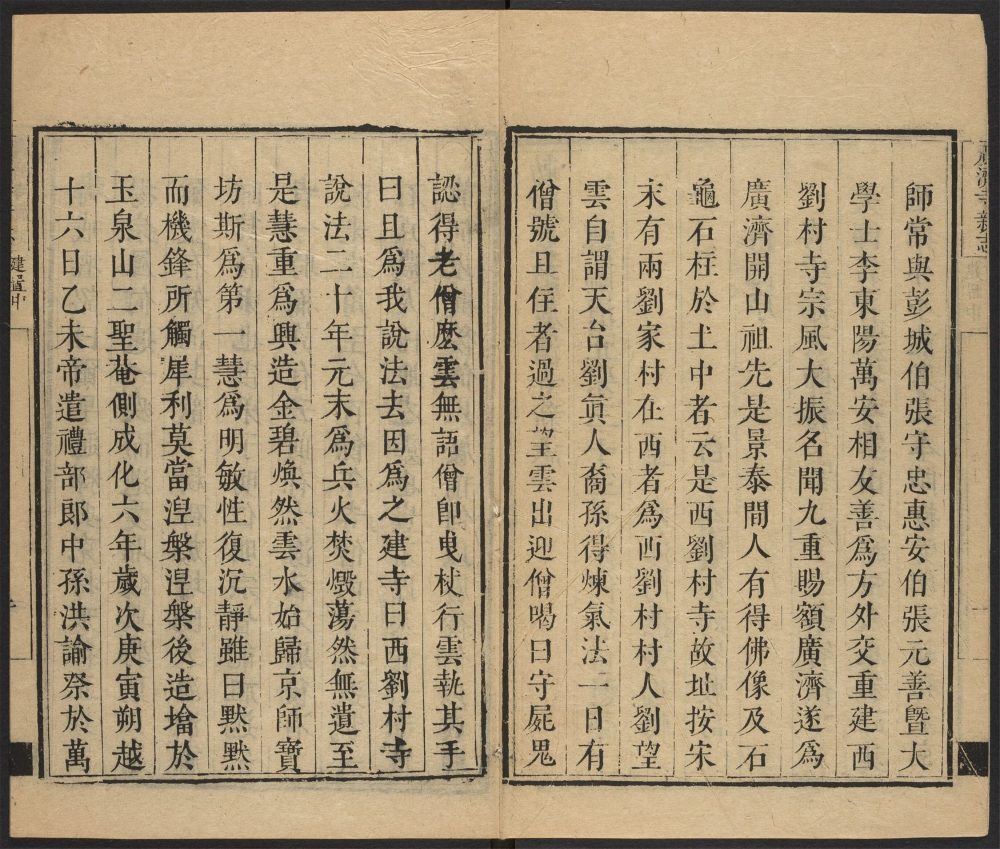 廣濟寺新志
師常與彭城伯張守忠惠安伯張元善曁大
學士李東陽萬安相友善爲方外交重建西
劉村寺宗風大振名聞九重賜額廣濟遂爲
廣濟開山祖先是景泰間人有得佛像及石
龜石柱於土中者云是西劉村寺故址按宋
末有兩劉家村在西者爲西劉村村人劉望
雲自謂天台劉眞人裔孫得煉氣法一日有
僧號且住者過之望雲出迎僧喝曰守屍鬼
認得老僧麽雲無語僧卽曳杖行雲執其手
曰且爲我說法去因爲之建寺曰西劉村寺
說法二十年元末爲兵火焚燬蕩然無遺至
是慧重爲興造金碧煥然雲水始歸京師寶
坊斯爲第一慧爲明敏性復沉靜雖日默默
而機鋒所觸犀利莫當涅槃涅槃後造墖於
玉泉山二聖菴側成化六年歲次庚寅朔越
十六日乙未帝遣禮部郎中孫洪諭祭於萬
建置中